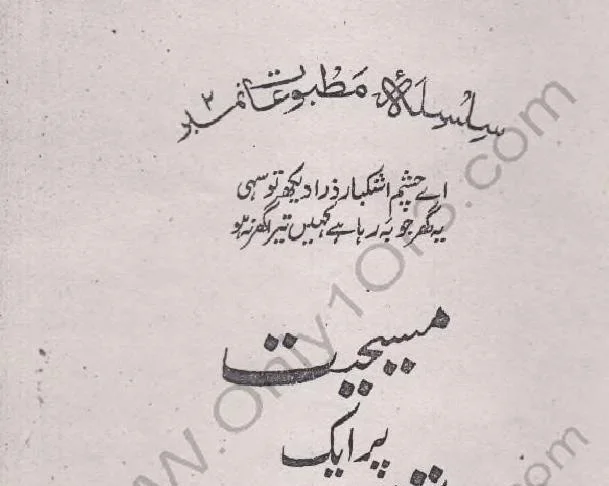 سلسلۂ مطبوعات نمبر ۲
اے چشم اشکبار ذرا دیکھ تو سہی
یہ گھر جو بہ رہا ہے کہیں تیرا گھر نہ ہو
مسیحیت
پر ایک
www.Only1Or3.com